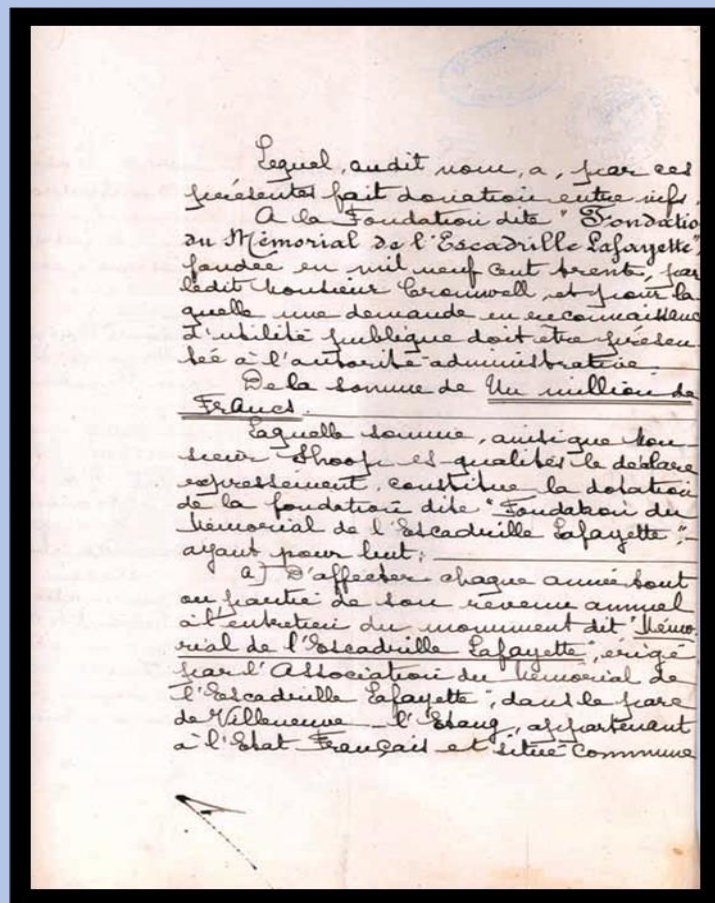 Lequel, audit nom, a, par ces
présentes fait donation entre vifs.
A la Fondation dite "Fondatio
du Mémorial de l'Escadrille Lafayette",
fondée en mil neuf cent trente, par
ledit Monsieur Cromwell, et pour la
quelle une demande en reconnaissance
d'utilité publique doit être présen
tée à l'autorité administrative.
De la somme de Un million de
Francs.
Laquelle somme, ainsi que Mon-
sieur Shoop es-qualités le déclare
expressément, constitue la dotation
de la fondation dite "Fondation du
Mémorial de l'Escadrille Lafayette",
ayant pour but:
a) D'affecter chaque année tout
ou partie de son revenu annuel
à l'entretien du monument dit "Mémo-
rial de l'Escadrille Lafayette", érigé
par l'Association du Mémorial de
l'Escadrille Lafayette", dans le parc
de Villeneuve-l'Etang, appartenant
à l'Etat Français et situé commune